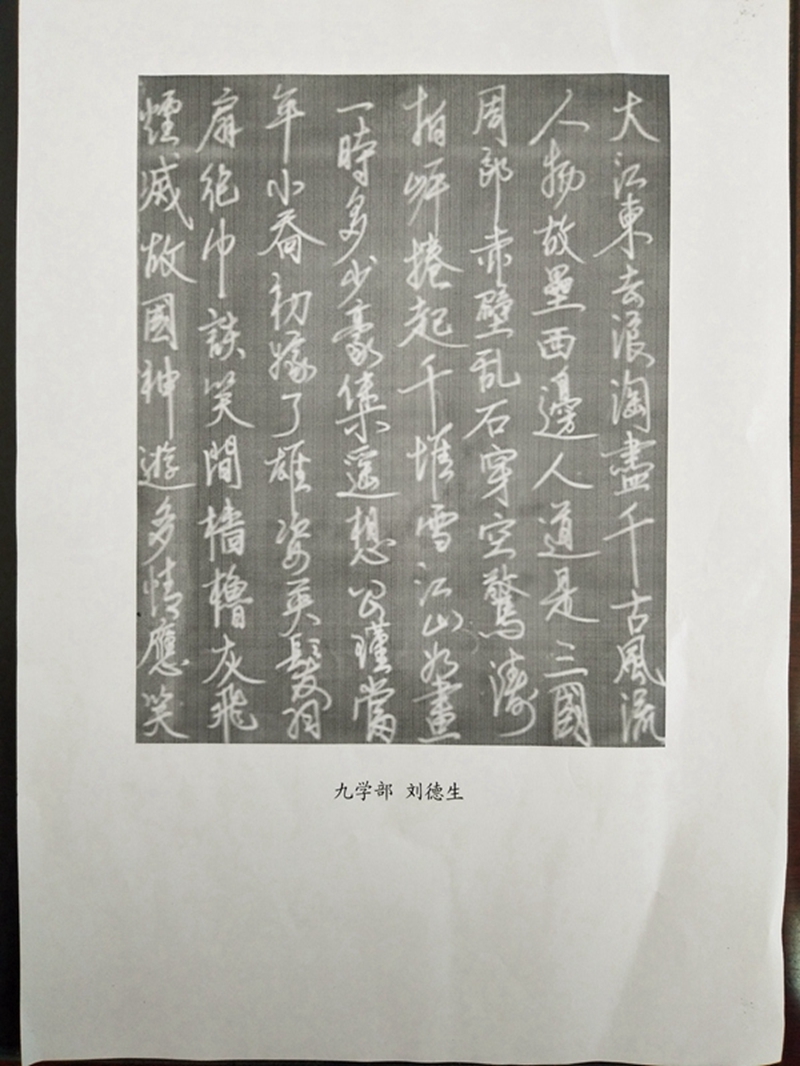 大江東去浪淘盡千古風流
人物故壘西邊人道是三國
周郎赤壁乱石穿空驚濤
拍岸捲起千堆雪江山如畫
一時多少豪傑遥想公瑾當
年小喬初嫁了雄姿英髮羽
扇綸巾談笑間檣櫓灰飛
煙滅故國神遊多情應笑
九学部 刘德生